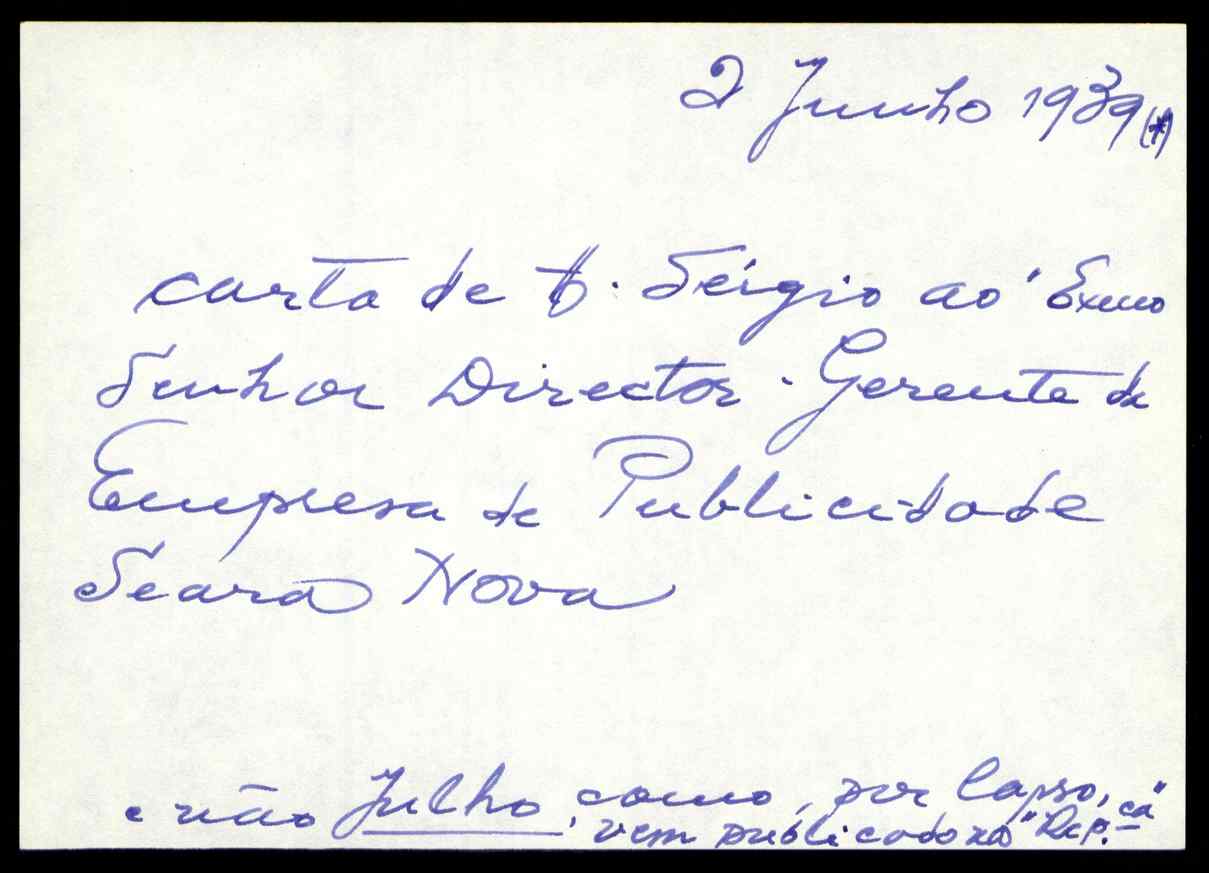 2 Junho 1939 (*)
Carta de A. Sérgio ao Exmo
Senhor Director-Gerente da
Empresa de Publicidade
Seara Nova
e não Julho, como, por lapso,
vem publicado na "Rep.ca"